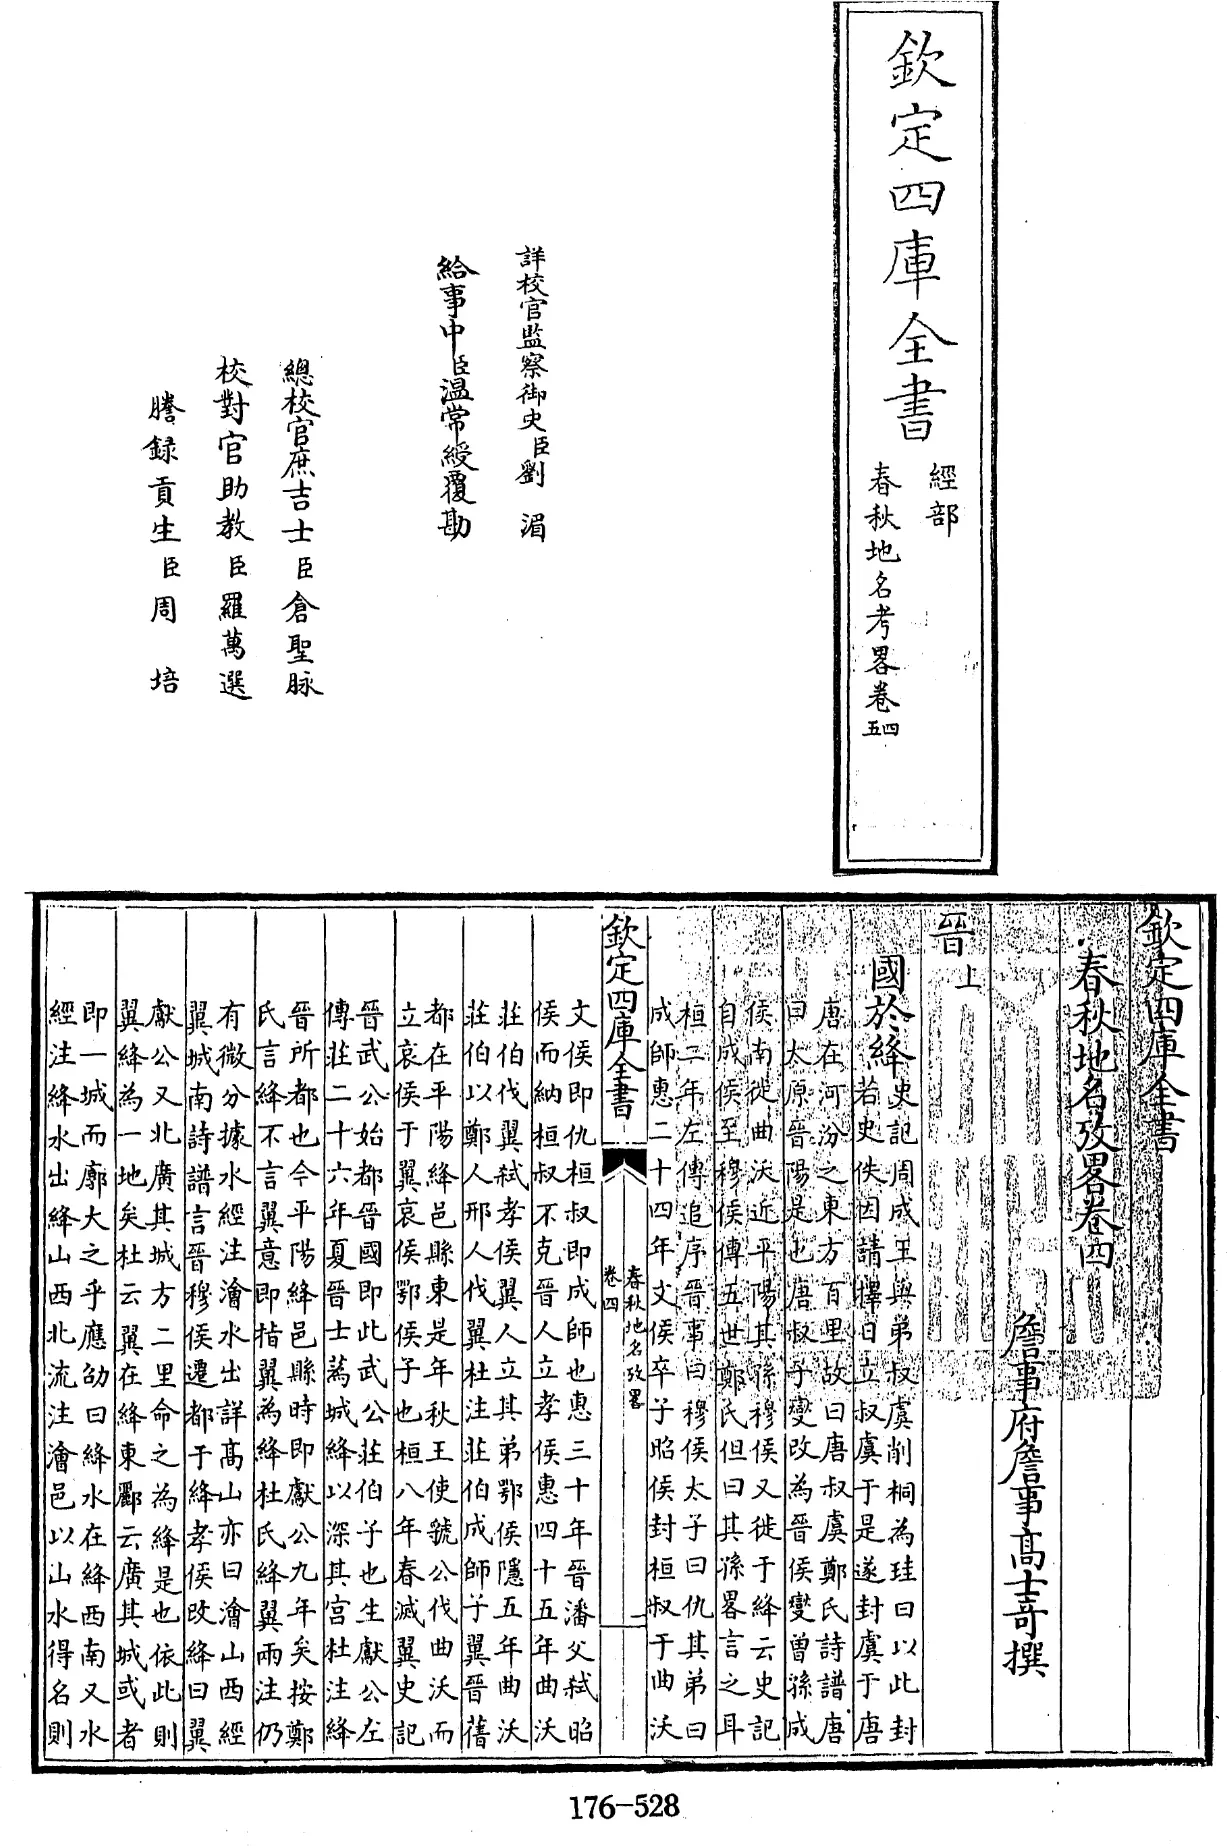 欽定四庫全書
經部
春秋地名考畧卷四五
詳校官監察御史臣劉湄
給事中臣温常綬覆勘
總校官庶吉士臣倉聖脉
校對官助教臣羅萬選
謄録貢生臣周培
欽定四庫全書
春秋地名攷畧卷四
詹事府詹事高士奇撰
晉上
國於絳
史記周成王與弟叔虞削桐為珪曰以此封
若史佚因請擇日立叔虞于是遂封虞于唐
唐在河汾之東方百里故曰唐叔虞鄭氏詩譜唐
曰太原晉陽是也唐叔子變改為晉侯變曾孫成
侯南徙曲沃近平陽其孫穆侯又徙于絳云史記
自成侯至穆侯傳五世鄭氏但曰其孫畧言之耳
桓二年左傳追序晉事曰穆侯太子曰仇其弟曰
成師惠二十四年文侯卒子昭侯封桓叔于曲沃
欽定四庫全書
春秋地名攷畧
卷四
一
文侯即仇桓叔即成師也惠三十年晉潘父弑昭
侯而納桓叔不克晉人立孝侯惠四十五年曲沃
莊伯伐翼弑孝侯翼人立其弟鄂侯隱五年曲沃
莊伯以鄭人邢人伐翼杜注莊伯成師子翼晉舊
都在平陽絳邑縣東是年秋王使虢公伐曲沃而
立哀侯于翼哀侯鄂侯子也桓八年春滅翼史記
晉武公始都晉國即此武公莊伯子也生獻公左
傳莊二十六年夏晉士蒍城絳以深其宮杜注絳
晉所都也今平陽絳邑縣時即獻公九年矣按鄭
氏言絳不言翼意即指翼為絳杜氏絳翼兩注仍
有微分據水經注澮水出詳高山亦曰澮山西經
翼城南詩譜言晉穆侯遷都于絳孝侯改絳曰翼
獻公又北廣其城方二里命之為絳是也依此則
翼絳為一地矣杜云翼在絳東酈云廣其城或者
即一城而廓大之乎應劭曰絳水在絳西南又水
經注絳水出絳山西北流注澮邑以山水得名則
176-528